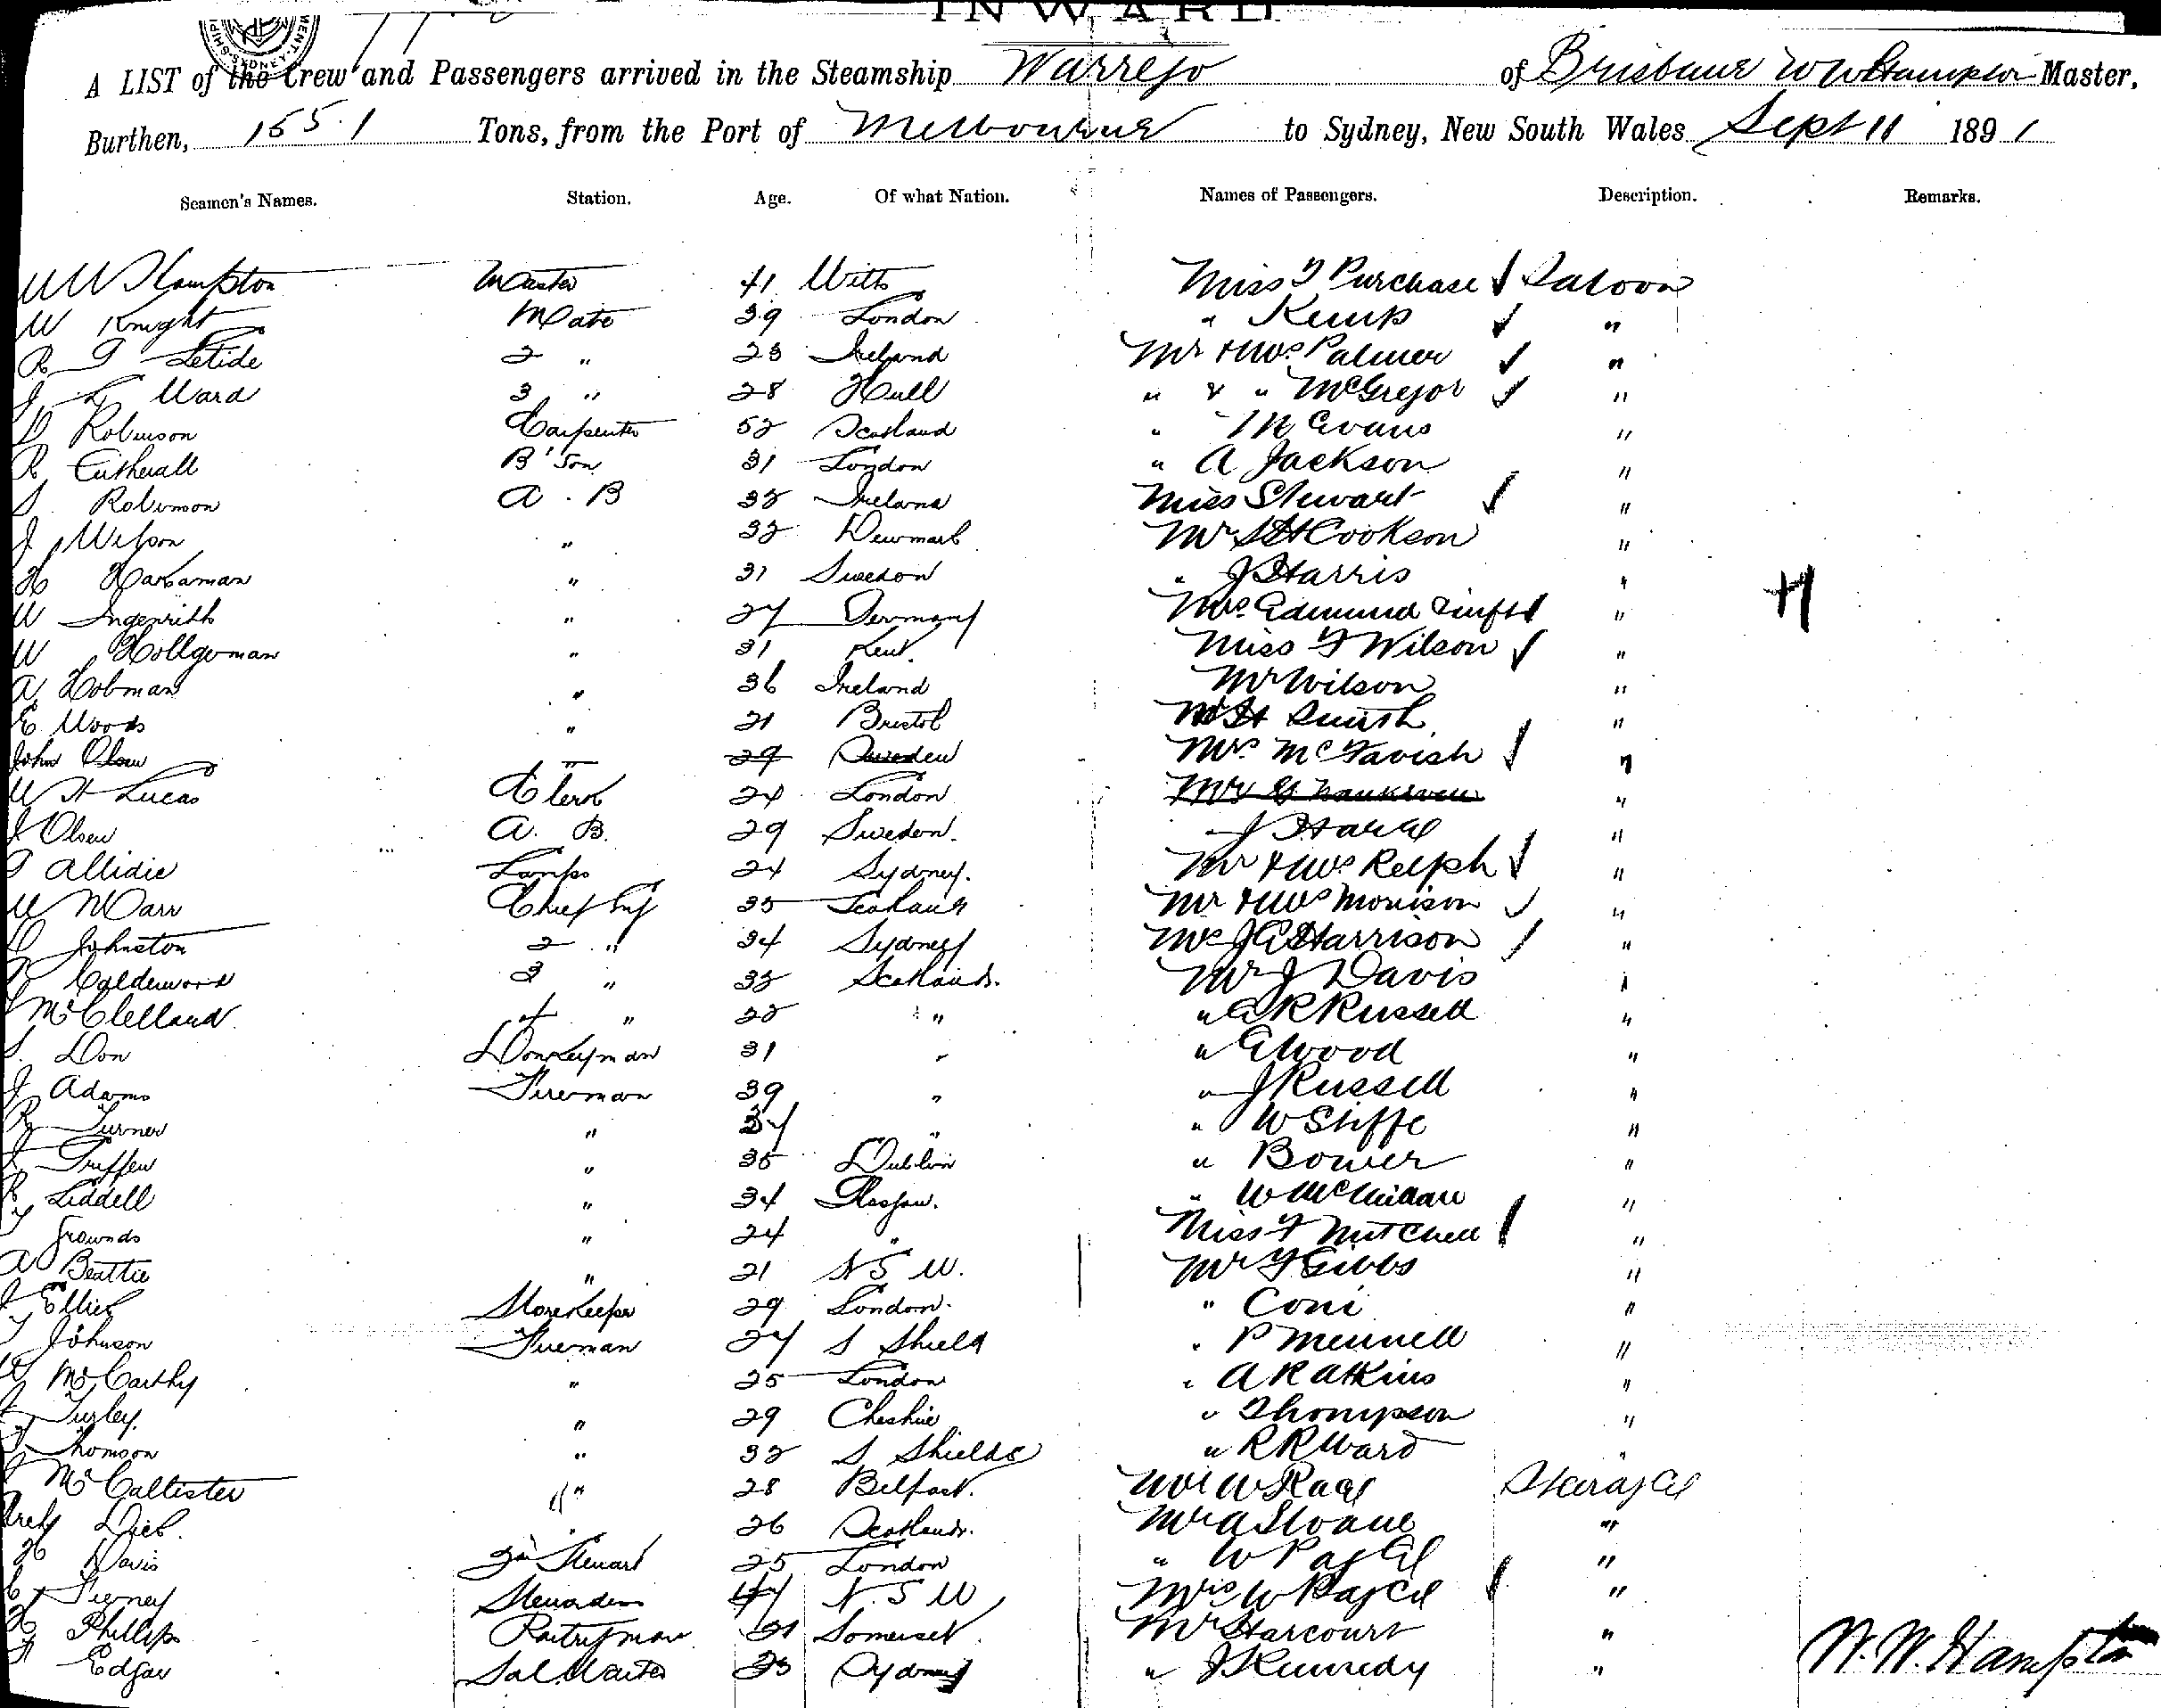 INWARD.
A LIST of the Crew and Passengers arrived in the Steamship Warrego of Brisbane W W Hampton Master,
Burthen, 155.1 Tons, from the Port of Melbourne to Sydney, New South Wales Sept 11 1891
Seamen's Names. Station. Age. Of what Nation. Names of Passengers. Description. Remarks.
W W Hampton Master 41 Wilts Miss Purchase Saloon
W Knight Mate 39 London " Kemp "
R Letide 2 " 23 Ireland Mr & Mrs Palmer "
J L Ward 3 " 28 Hull " & " McGregor "
D Robinson Carpenter 52 Scotland " Evans "
R Eutherall B'Son 31 London " A Jackson "
S Robinson A.B 32 Ireland Miss Stewart "
J Wilson " 32 Denmark Mr Cookson "
H " 31 Sweden " J Harris "
W " 27 Germany Mrs Edmund "
W " 31 Kent. Miss F Wilson "
A Hobman " 36 Ireland Mr Wilson "
E Woods " 21 Bristol H Smith "
John Olsen " 29 Sweden Mrs McTavish "
W H Lucas Clerk 24 London Mr G "
J Olsen A.B. 29 Sweden. J "
T Allidie Lamps 24 Sydney. Mr & Mrs Relph "
W Marr Chief Eng 35 Scotland Mr & Mrs Morrison "
D Johnston 2 " 34 Sydney J Harrison "
Calderwood 3 " 32 Scotland. Mr J Davis "
McClelland 4 " 22 " " R Russell "
S. Don Donkeyman 31 " " E Wood "
J Adams Fireman 39 " " J Russell "
R Turner " " " W Stiffe "
J Truffen " 35 Dublin " Bower "
R Liddell " 34 Glasgow. " W McMillan "
Grounds " 24 " Miss F Mitchell "
A Beattie " 21 N S W. Mr F Gibbs "
J Storekeeper 29 London. " Coni "
Johnson Fireman 27 S Shield " P Mennell "
McCarthy " 25 London " A R Atkins "
Turley. " 29 Cheshire " Thompson "
Thomson " 32 S Shields " R R Ward "
McCallister " 28 Belfast. Mr W Steerage
Archy Dick. " 26 Scotland. Mr A Sloane "
H Davis 2nd Steward 25 London " W "
Tierney Stewardess N.S W Mrs W "
Phillips Pantryman 21 Somerset. Mr Harcourt "
Edgar Sal Waiter 23 Sydney " J Kennedy "
W.W. Hampton